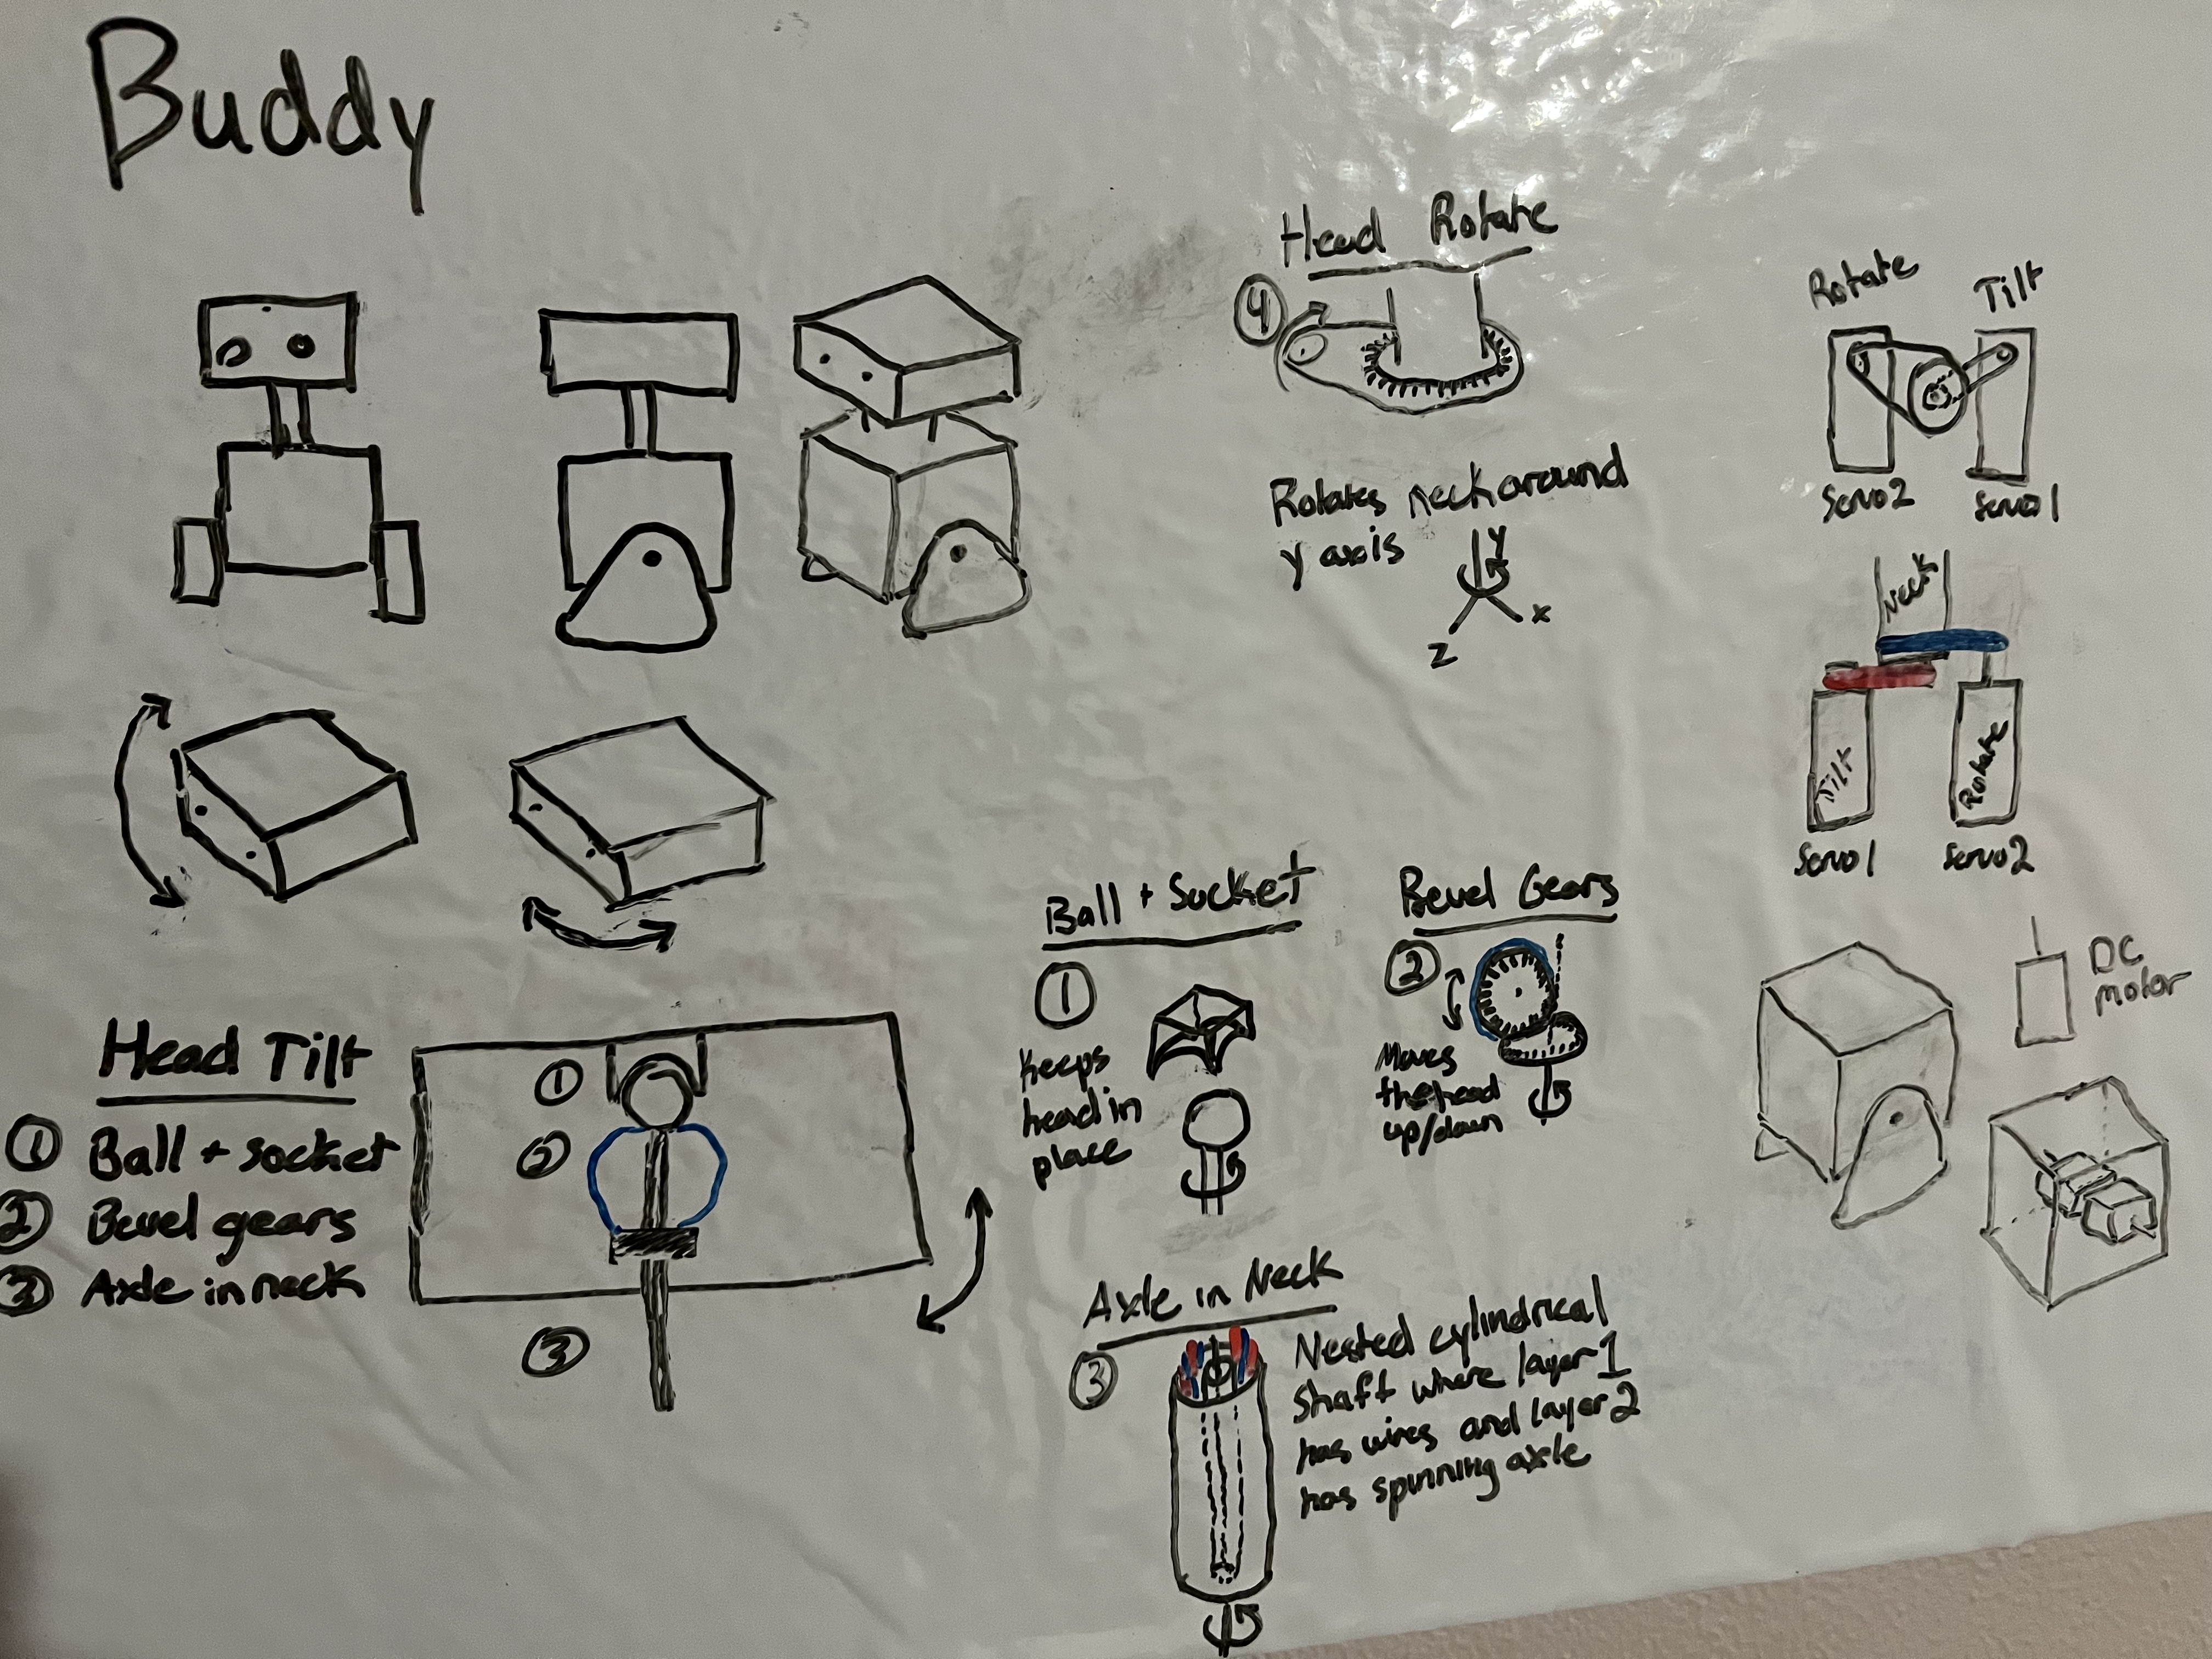 Buddy
Head Rotate
4
Rotates neck around
y axis
y
x
z
Rotate
Tilt
Servo2
Servo1
Neck
Tilt
Rotate
Servo1
Servo2
DC
motor
Head Tilt
1 Ball + socket
2 Bevel gears
3 Axle in neck
1
2
3
Ball + Socket
1
Keeps
head in
place
Bevel Gears
2
Moves
the head
up/down
Axle in Neck
3
Nested cylindrical
shaft where layer 1
has wires and layer 2
has spinning axle